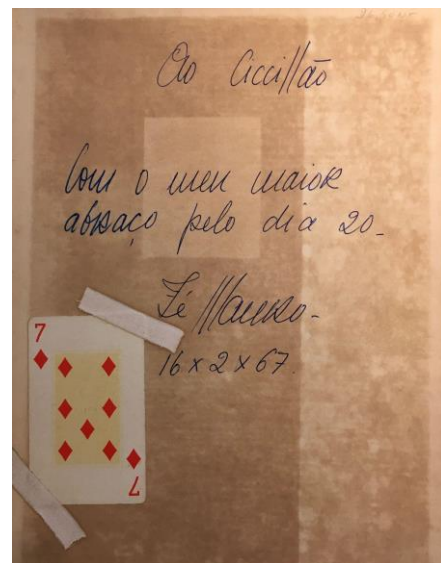 Ao Ciccillão
Com o meu maior
abraço pelo dia 20-
Zé Mauro-
16x2x67.
7
7